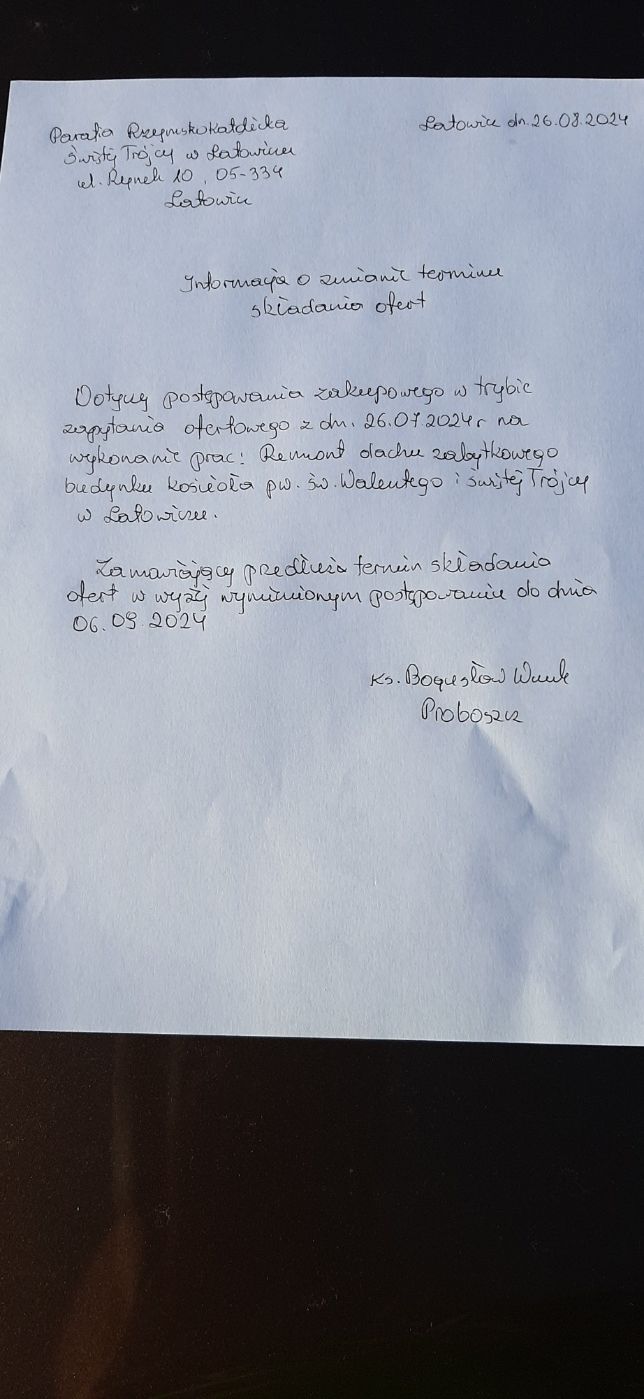 Parafia Rzymskokatolicka
Świętej Trójcy w Latowiczu
ul. Rynek 10, 05-334
Latowicz
Latowicz dn. 26.08.2024
Informacja o zmianie terminu
składania ofert
Dotyczy postępowania zakupowego w trybie
zapytania ofertowego z dn. 26.07.2024r na
wykonanie prac: Remont dachu zabytkowego
budynku kościoła pw. św. Walentego i Świętej Trójcy
w Latowiczu.
Zamawiający przedłuża termin składania
ofert w wyżej wymienionym postępowaniu do dnia
06.09.2024
Ks. Bogusław
Proboszcz